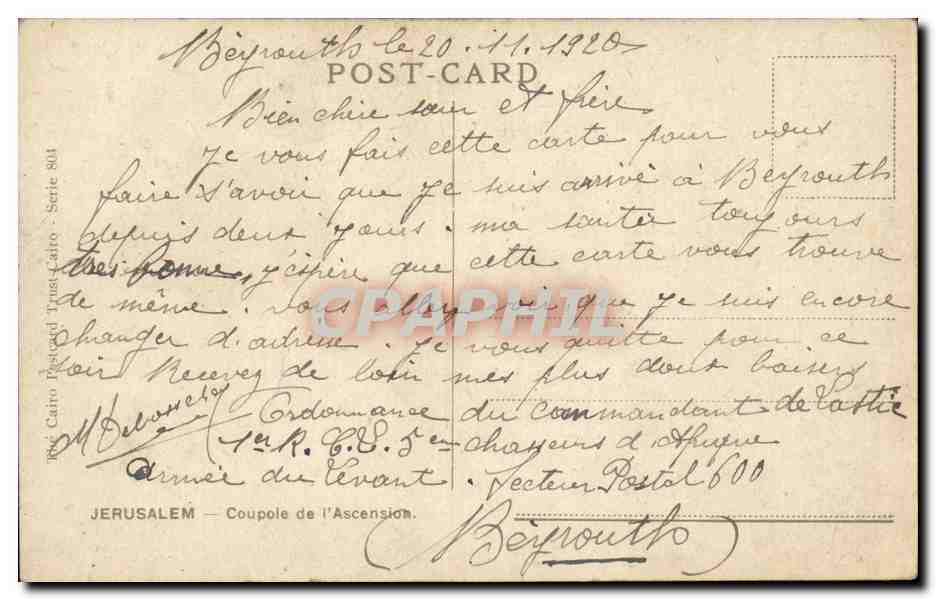 Bèyrouth le 20.11.1920
POST-CARD
Bien chère sœur et frère
Je vous fais cette carte pour vous
faire s'avoir que je suis arrivé à Beyrouth
depuis deux jours. ma santée toujours
très bonne, j'éspère que cette carte vous trouve
de même. vous allez voir que je suis encore
changer d'adresse. Je vous quitte pour ce
soir Recevez de loin mes plus doux baisers
Ordonnance du commandant de
1er R. C. E. 5em chasseurs d'Afrique
armée du Levant. Secteur Postal 600
(Bèyrouth)
JERUSALEM — Coupole de l'Ascension.
The Cairo Postcard Trust Cairo - Serie 804
CPAPHIL